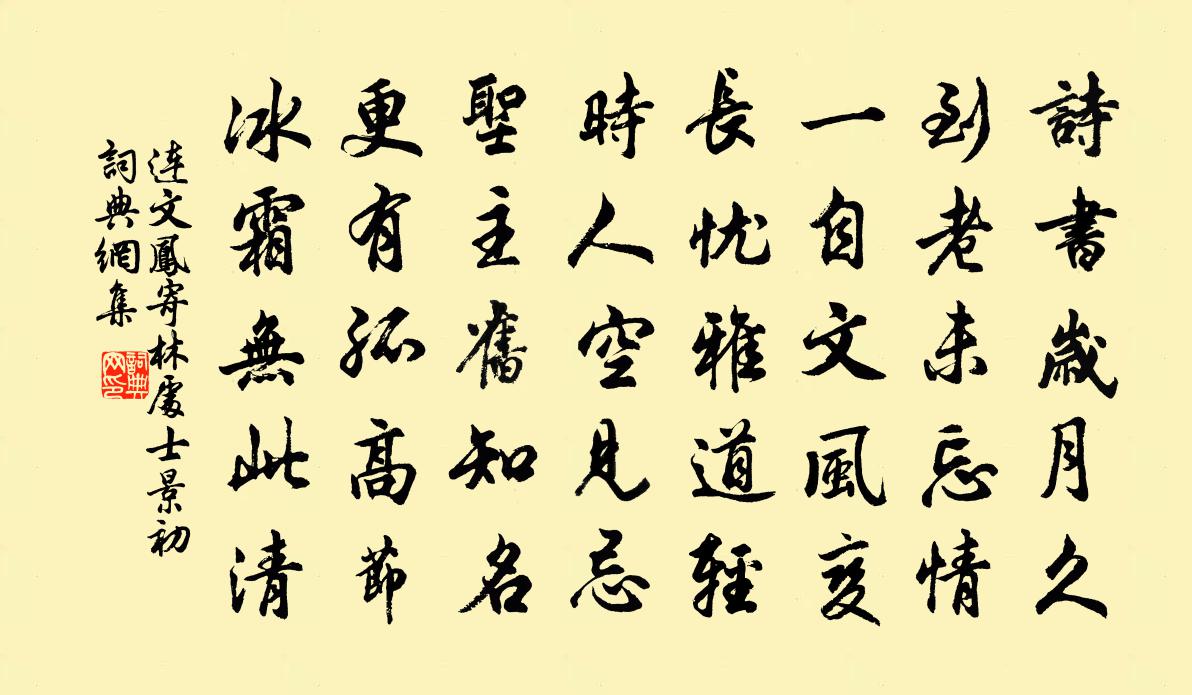 詩書歲月久
到老未忘情
一自文風變
長忧雅道輕
時人空見忌
聖主舊知名
更有孤高節
冰霜無此清
連文鳳寄林處士景初
詞典網集
詞典网印